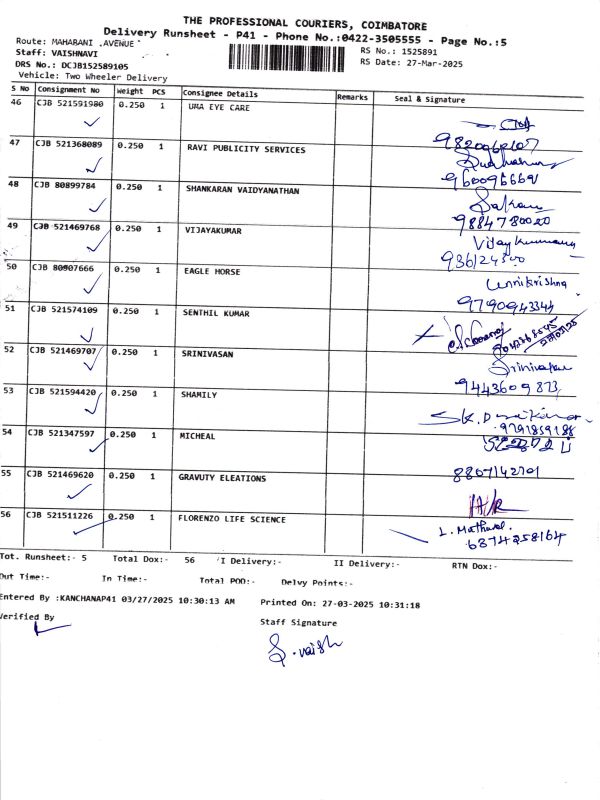 THE PROFESSIONAL COURIERS, COIMBATORE
Delivery Runsheet - P41 - Phone No.:0422-3505555 - Page No.:5
Route: MAHARANI .AVENUE
RS No.: 1525891
Staff: VAISHNAVI
DRS No.: DCJB152589105
RS Date: 27-Mar-2025
Vehicle: Two Wheeler Delivery
S No Consignment No Weight PCS Consignee Details Remarks Seal & Signature
46 CJB 521591980 0.250 1 UMA EYE CARE
47 CJB 521368089 0.250 PCS RAVI PUBLICITY SERVICES
48 CJB 80899784 0.250 1 SHANKARAN VAIDYANATHAN
9884780020
49 CJB 521469768 0.250 1 VIJAYKUMAR
Vijaykumar
50 CJB 80907666 0.250 1 EAGLE HORSE
Unnikrishna
9790943344
51 CJB 521574109 0.250 1 SENTHIL KUMAR
52 CJB 521469707 0.250 1 SRINIVASAN
Srinivasan
9443609873
53 CJB 521594420 0.250 1 SHAMILY
9791859188
54 CJB 521347597 0.250 1 MICHEAL
8807142701
55 CJB 521469620 0.250 1 GRAVUTY ELEATIONS
56 CJB 521511226 0.250 1 FLORENZO LIFE SCIENCE
6374258164
Tot. Runsheet:- 5 Total Dox:- 56 'I Delivery:- II Delivery:- RTN Dox:-
Out Time:- In Time:- Total POD:- Delvy Points:-
Entered By :KANCHANAP41 03/27/2025 10:30:13 AM Printed On: 27-03-2025 10:31:18
Verified By Staff Signature
S.vaish